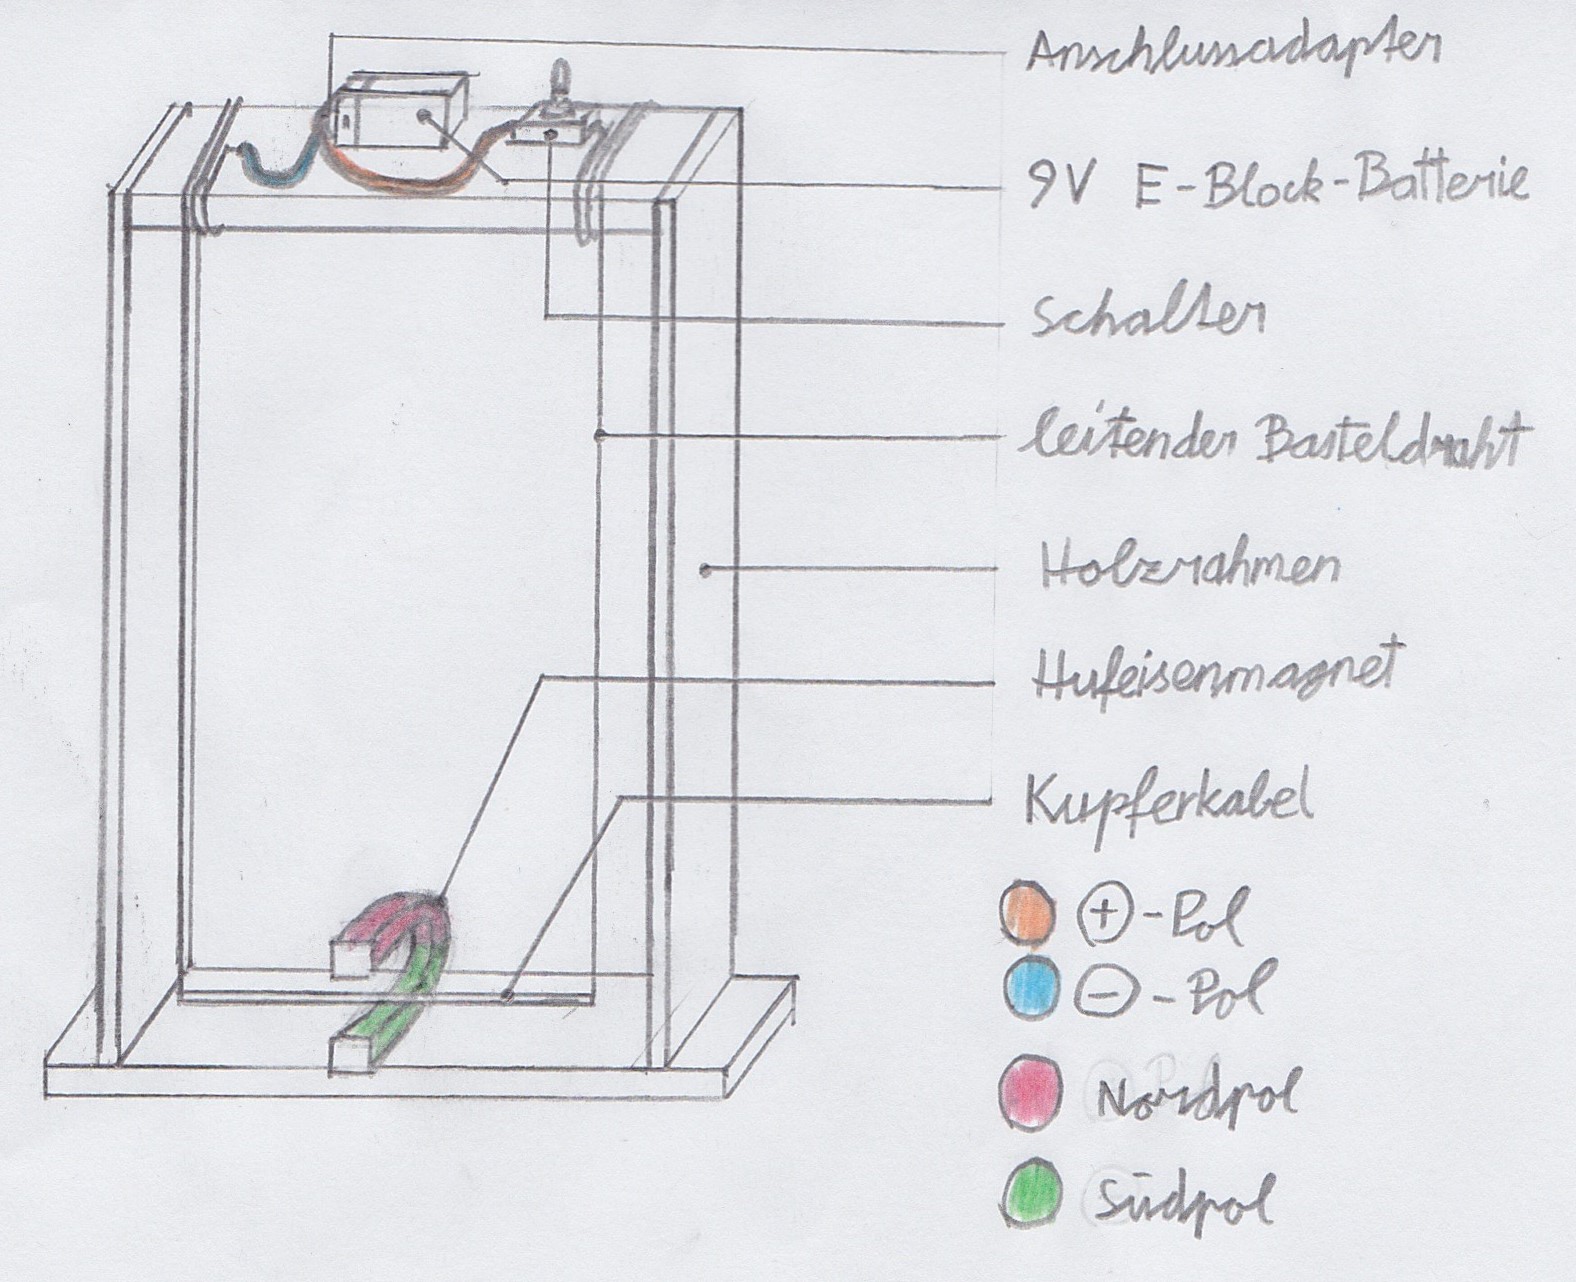 Anschlussadapter
9V E-Block-Batterie
Schalter
leitender Basteldraht
Holzrahmen
Hufeisenmagnet
Kupferkabel
+ -Pol
- -Pol
Nordpol
Südpol